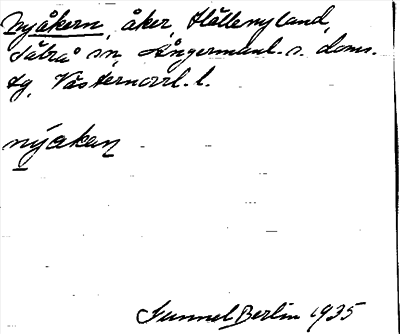 Nyåkern, åker, Hållenyland,
Såbrå sn, Ångermanl. s. doms.
tg, Västernorrl. l.
nýakaɳ
Gunnel Berlin 1935